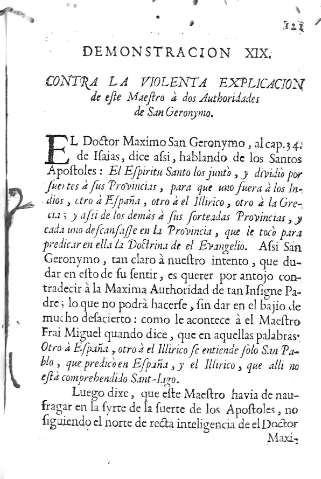 121
DEMONSTRACION XIX.
CONTRA LA VIOLENTA EXPLICACION
de eſte Maeſtro à dos Authoridades
de San Geronymo.
EL Doctor Maximo San Geronymo, al cap.34.
de Iſaias, dice aſsi, hablando de los Santos
Apoſtoles: El Eſpiritu Santo los juntò, y dividiò por
ſuertes à ſus Provincias, para que uno fuera à los In-
dios, otro à Eſpaña, otro à el Illirico, otro à la Gre-
cia; y aſsi de los demàs à ſus ſorteadas Provincias, y
cada uno deſcanſaſſe en la Provincia, que le tocò para
predicar en ella la Doctrina de el Evangelio. Aſsi San
Geronymo, tan claro à nueſtro intento, que du-
dar en eſto de ſu ſentir, es querer por antojo con-
tradecir à la Maxima Authoridad de tan Inſigne Pa-
dre; lo que no podrà hacerſe, ſin dar en el bajio de
mucho deſacierto: como le acontece à el Maeſtro
Frai Miguel quando dice, que en aquellas palabras:
Otro à Eſpaña, otro à el Illirico ſe entiende ſolo San Pa-
blo, que predicò en Eſpaña, y el Illirico, que alli no
eſtà comprehendido Sant-Iago.
Luego dixe, que eſte Maeſtro havia de nau-
fragar en la ſyrte de la ſuerte de los Apoſtoles, no
ſiguiendo el norte de recta inteligencia de el Doctor
Maxi-